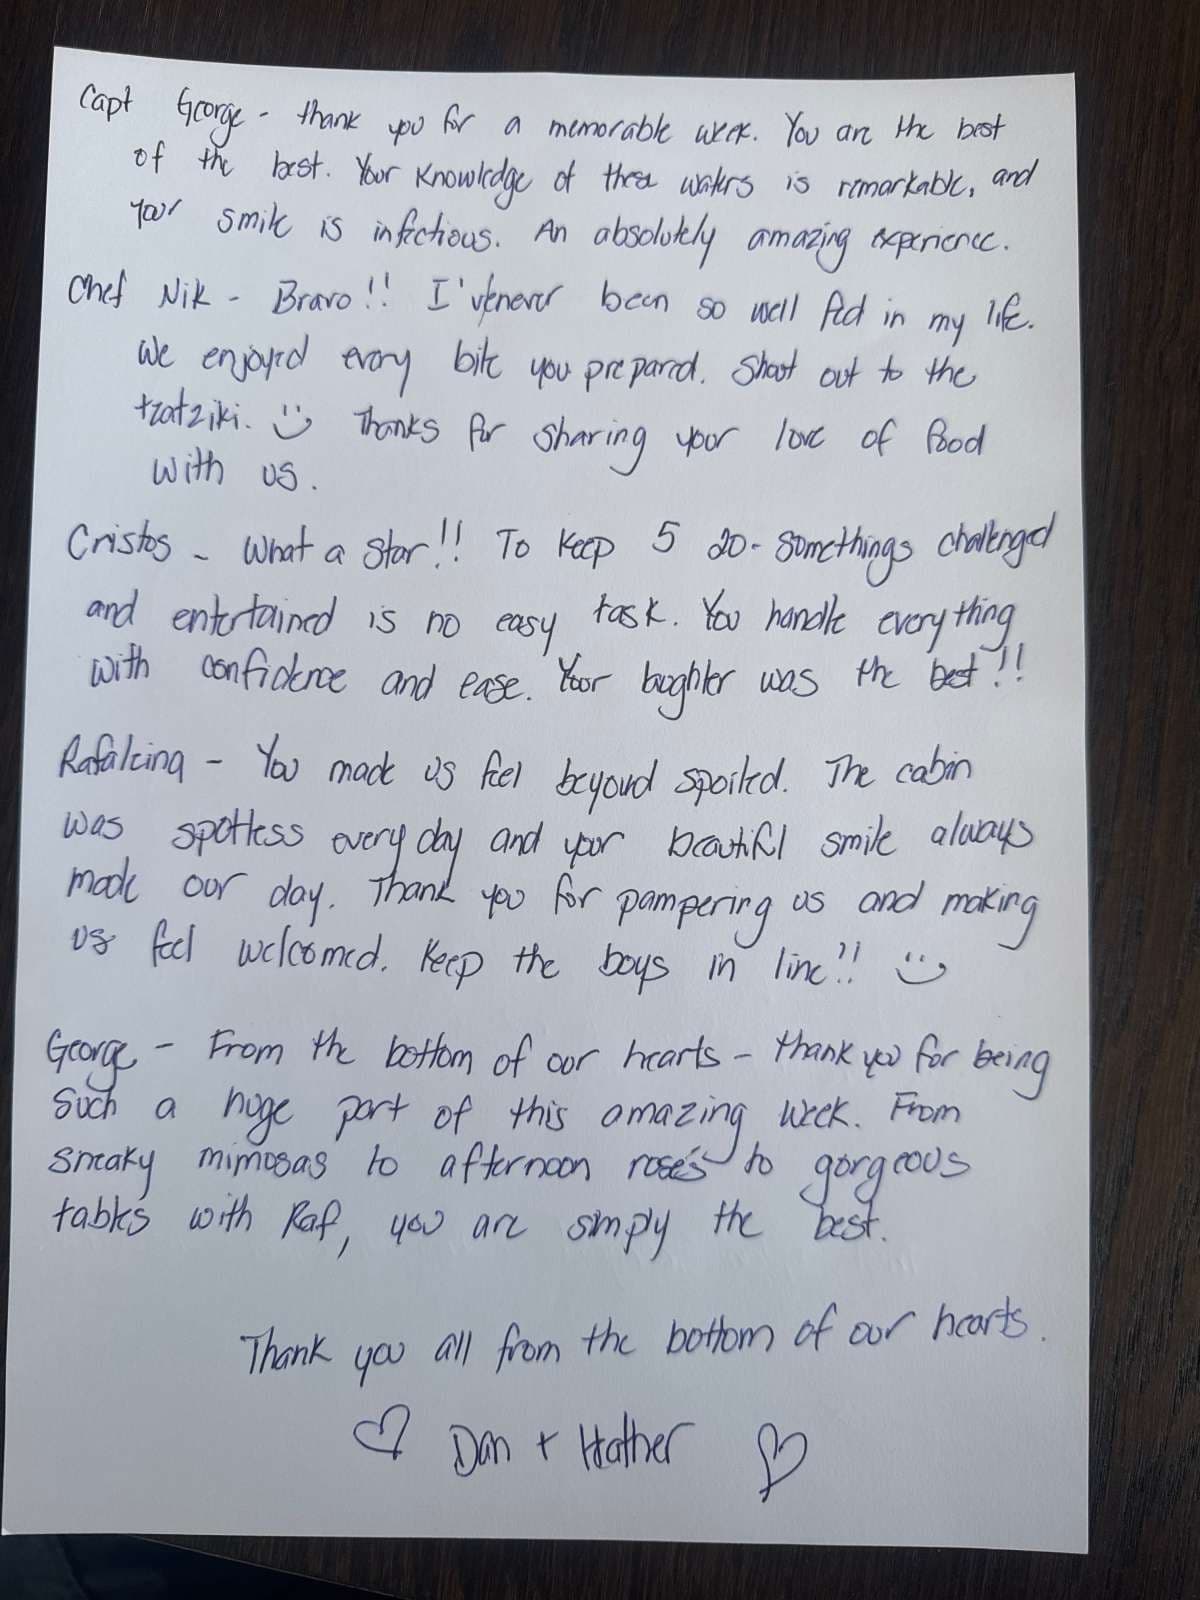 Capt George - thank you for a memorable week. You are the best
of the best. Your knowledge of these waters is remarkable, and
your smile is infectious. An absolutely amazing experience.
Chef Nik - Bravo!! I've never been so well fed in my life.
We enjoyed every bite you prepared. Shout out to the
tzatziki. :) Thanks for sharing your love of food
with us.
Cristos - What a star!! To keep 5 20-somethings challenged
and entertained is no easy task. You handle everything
with confidence and ease. Your laughter was the best!!
Rafaleina - You made us feel beyound spoiled. The cabin
was spotless every day and your beautiful smile always
made our day. Thank you for pampering us and making
us feel welcomed. Keep the boys in line!! :)
George - From the bottom of our hearts - thank you for being
such a huge part of this amazing week. From
sneaky mimosas to afternoon rosés to gorgeous
tables with Raf, you are simply the best.
Thank you all from the bottom of our hearts.
♡ Dan + Heather ♡